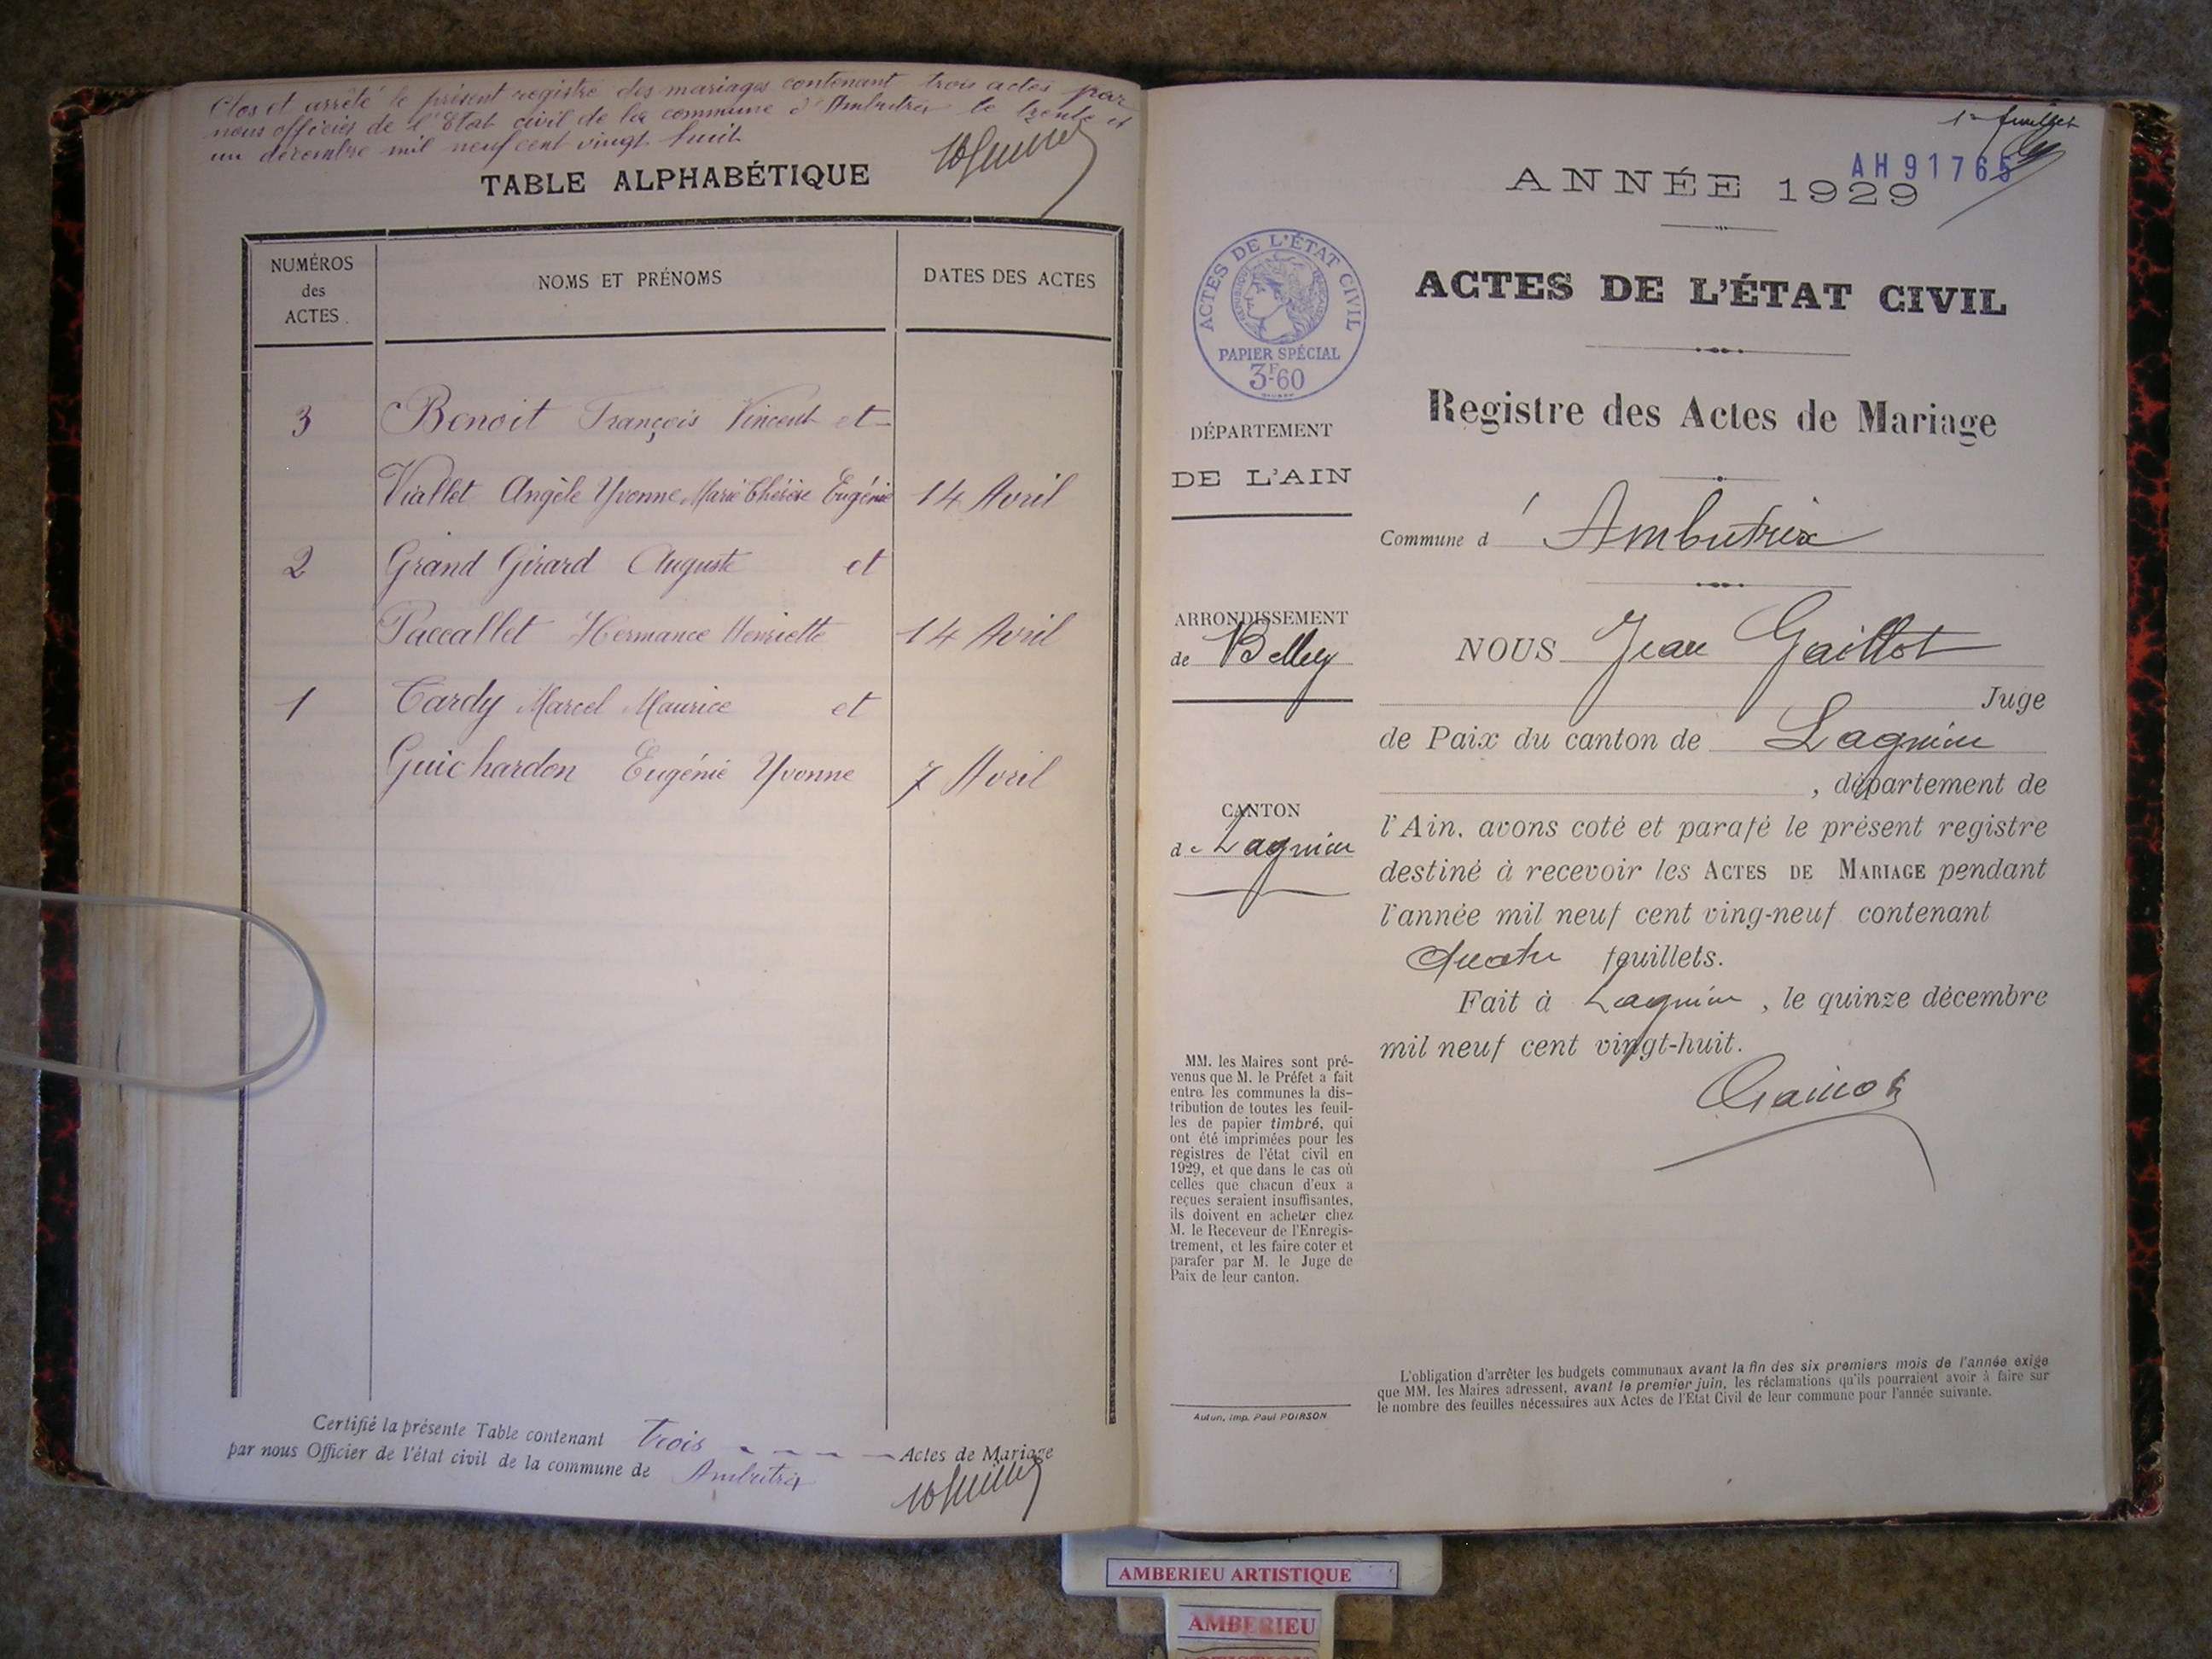 Clos et arrêté le présent registre des mariages contenant trois actes par
nous officier de l'Etat civil de la commune d'Ambutrix le trente et
un décembre mil neuf cent vingt huit
TABLE ALPHABÉTIQUE
NUMÉROS
des
ACTES
NOMS ET PRÉNOMS
DATES DES ACTES
3 Benoit François Vincent et
Viallet Angèle Yvonne Marie Thérèse Eugénie 14 Avril
2 Grand Girard Auguste et
Paccallet Hermance Henriette 14 Avril
1 Tardy Marcel Maurice et
Guichardon Eugénie Yvonne 7 Avril
Certifié la présente Table contenant trois Actes de Mariage
par nous Officier de l'état civil de la commune de Ambutrix
1er feuillet
AH 91765
ANNÉE 1929
ACTES DE L'ÉTAT CIVIL
PAPIER SPÉCIAL
3F60
ACTES DE L'ÉTAT CIVIL
Registre des Actes de Mariage
DÉPARTEMENT
DE L'AIN
Commune d' Ambutrix
ARRONDISSEMENT
de Belley
CANTON
de Lagnieu
NOUS Jean Gaillot
Juge
de Paix du canton de Lagnieu
, département de
l'Ain, avons coté et parafé le présent registre
destiné à recevoir les ACTES DE MARIAGE pendant
l'année mil neuf cent ving-neuf contenant
Quatre feuillets.
Fait à Lagnieu, le quinze décembre
mil neuf cent vingt-huit.
MM. les Maires sont pré-
venus que M. le Préfet a fait
entre les communes la dis-
tribution de toutes les feuil-
les de papier timbré, qui
ont été imprimées pour les
registres de l'état civil en
1929, et que dans le cas où
celles que chacun d'eux a
reçues seraient insuffisantes,
ils doivent en acheter chez
M. le Receveur de l'Enregis-
trement, et les faire coter et
parafer par M. le Juge de
Paix de leur canton.
Autun, imp. Paul POIRSON
L'obligation d'arrêter les budgets communaux avant la fin des six premiers mois de l'année exige
que MM. les Maires adressent, avant le premier juin, les réclamations qu'ils pourraient avoir à faire sur
le nombre des feuilles nécessaires aux Actes de l'Etat Civil de leur commune pour l'année suivante.
AMBERIEU ARTISTIQUE
AMBERIEU